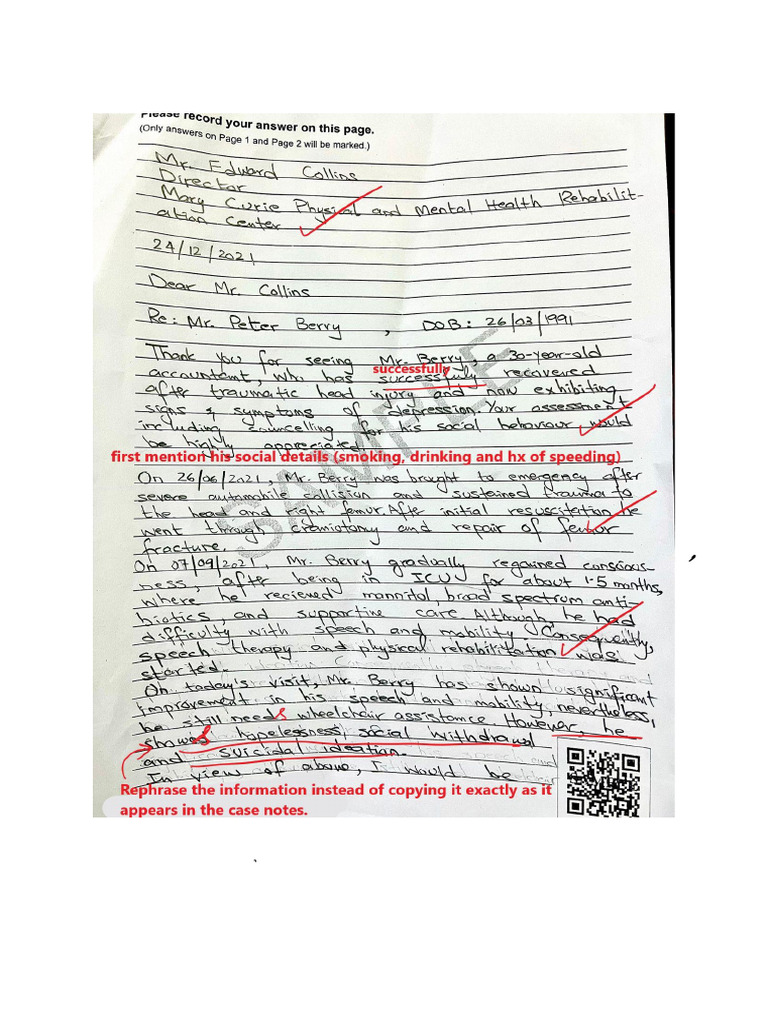 Please record your answer on this page.
(Only answers on Page 1 and Page 2 will be marked.)
Mr. Edward Collins
Director
Mary Curie Physical and Mental Health Rehabilit-
ation Center
24/12/2021
Dear Mr. Collins
Re: Mr. Peter Berry , DOB: 26/03/1991
Thank you for seeing Mr. Berry, a 30-year-old
successfully
accountant, who has successfuly recovered
after traumatic head injury and now exhibiting
signs & symptoms of depression. Your assessment
including councelling for his social behaviour, would
be highly appreciated.
first mention his social details (smoking, drinking and hx of speeding)
On 26/06/2021, Mr. Berry was brought to emergency after
severe automobile collision and sustained trauma to
the head and right femur. After initial resuscitation, he
went through craniotomy and repair of femur
fracture.
On 07/09/2021, Mr. Berry gradually regained conscious-
ness, after being in ICU for about 1.5 months,
where he recieved mannitol, broad spectrum anti-
biotics, and supportive care. Although, he had
difficulty with speech and mobility. Consequently,
speech therapy and physical rehabilitation was
started.
On today's visit, Mr. Berry has shown significant
improvement in his speech and mobility, nevertheless,
he still needs wheelchair assistance. However, he
showed hopelessness, social withdrawal
and suicidal ideation.
In view of above, I would be
Rephrase the information instead of copying it exactly as it
appears in the case notes.
SAMPLE